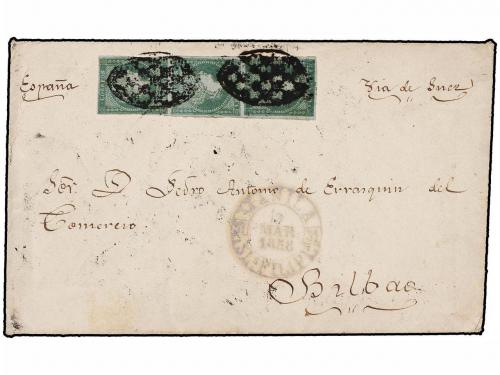 España
Via de Suez
Señ. D. Pedro Antonio de Errazquin del
Comercio
MANILA
MAR
1858
Bilbao